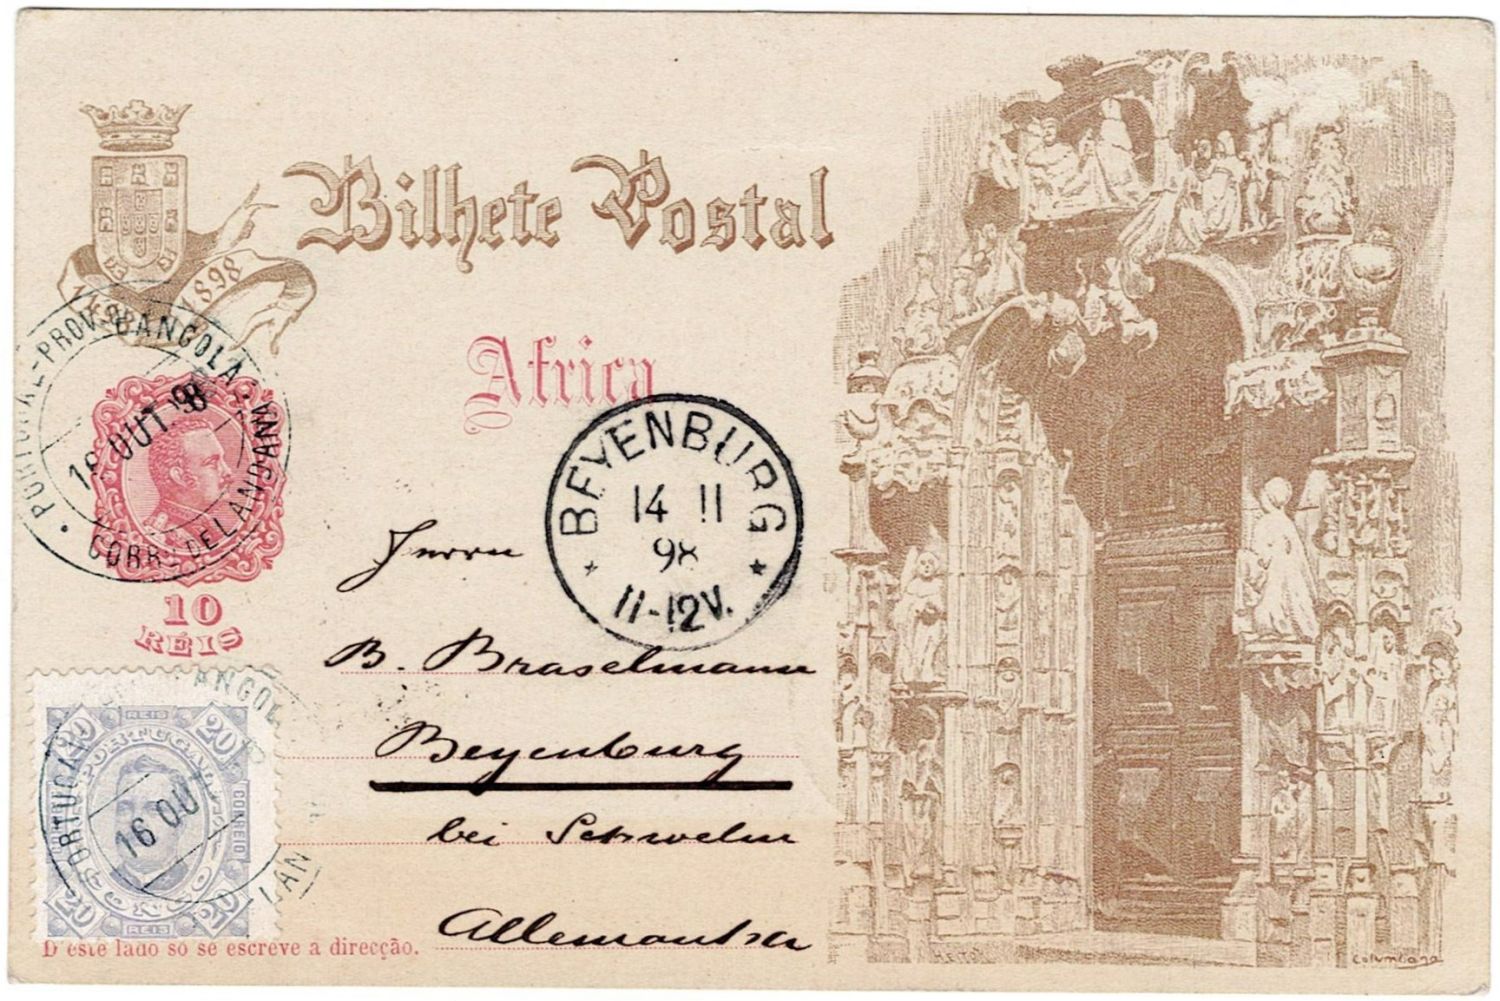 Bilhete Postal
1898
Africa
PORTUGAL-PROV. D'ANGOLA
16 OUT 98
CORRº DE LANDANA
10
RÉIS
BEYENBURG
14 11
98
11-12V.
Herrn
B. Braselmann
Beyenburg
bei Schwelm
Allemanha
20 REIS 20
PORTUGAL
CORREIO
CONGO
20 REIS 20
PORTUGAL ANGOL
16 OU
LAN
D'este lado só se escreve a direcção.
HEITOR
Columbano